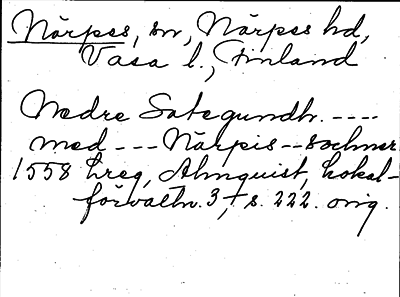 Närpes, sn, Närpes hd,
Vasa l., Finland
Nedre Sategundh. ----
med --- Närpis -- sochner
1558 Lreg, Almquist, Lokal-
förvaltn. 3, s. 222. orig.